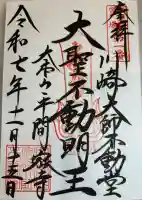 奉拝
川崎大師不動堂
大聖不動明王
大本山平間寺
令和七年十一月十五日